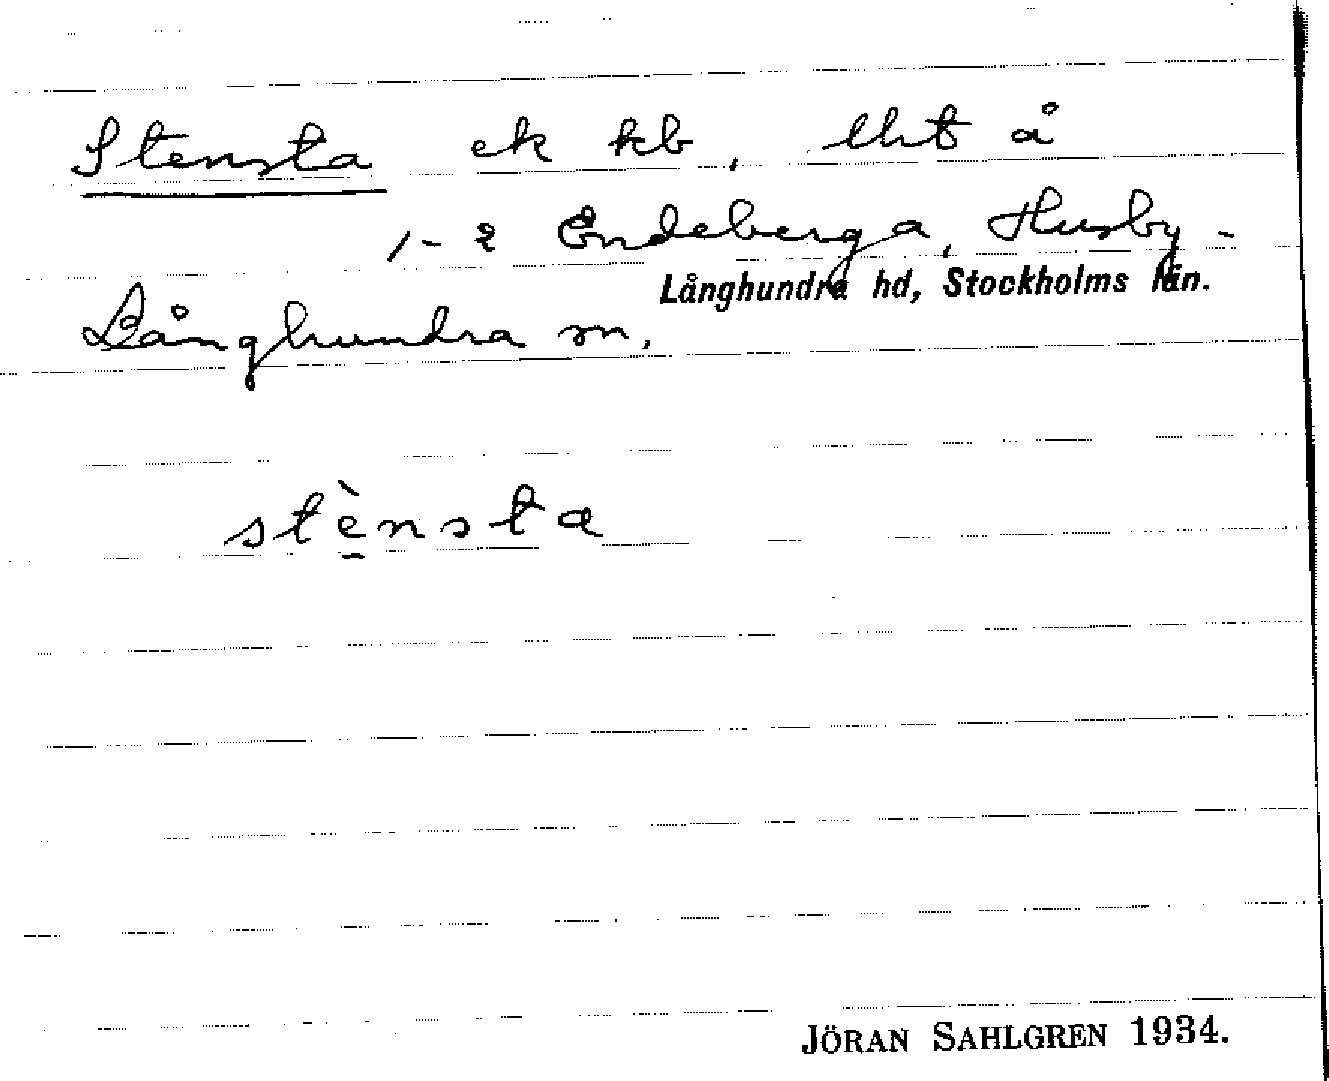 Stensta ek kb, lht å
1-2 Endeberga, Husby-
Långhundra hd, Stockholms län.
Långhundra sn.
stè̱nsta
JÖRAN SAHLGREN 1934.